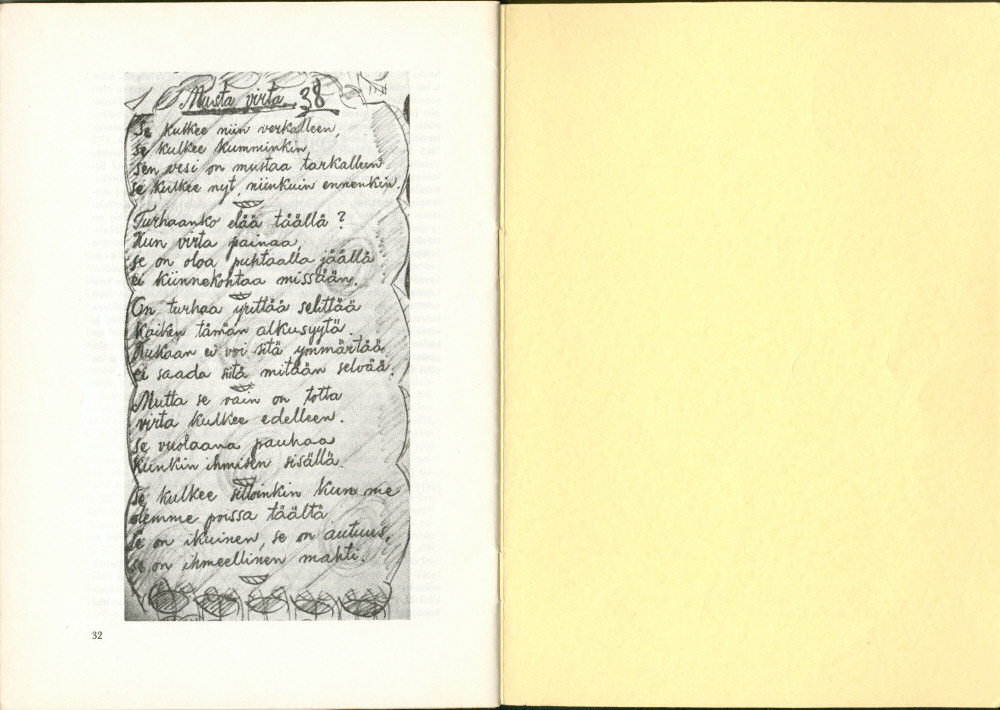 Musta virta 38
Se kulkee niin verkalleen,
se kulkee kumminkin
sen vesi on mustaa tarkalleen
se kulkee nyt, niinkuin ennenkin.
Turhaanko elää täällä?
Kun virta painaa,
se on oloa puhtaalla jäällä
ei kiinnekohtaa missään.
On turhaa yrittää selittää
kaiken tämän alkusyytä.
Kukaan ei voi sitä ymmärtää
ei saada siitä mitään selvää.
Mutta se vain on totta
virta kulkee edelleen.
Se vuolaana pauhaa
kunkin ihmisen sisällä.
Se kulkee silloinkin kun me
olemme poissa täältä
Se on ikuinen, se on autuus,
se on ihmeellinen mahti.
32